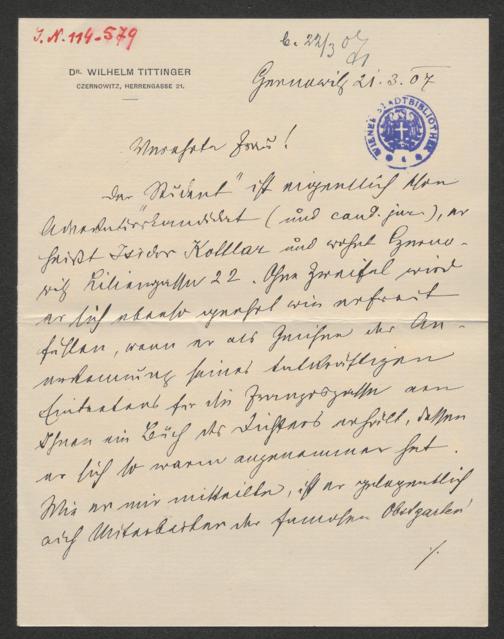 J.N. 114-579
b. 22/3 07
Dr. WILHELM TITTINGER
CZERNOWITZ, HERRENGASSE 21.
Czernowitz 21.3.07
WIENER STADTBIBLIOTHEK
Verehrte Frau!
Der "Student" ist eigentlich schon
Advokaturskandidat (und cand. jur.), er
heißt Isidor Kottlar und wohnt Czerno-
witz Liliengasse 22. Ohne Zweifel wird
er sich ebenso geehrt wie erfreut
fühlen, wenn er als Zeichen der An-
erkennung seines tatkräftigen
Eintretens für die von
Ihnen ein Buch des Dichters erhält, dessen
er sich so warm angenommen hat.
Wie er mir mitteilte, ist er gelegentlich
auch Mitarbeiter der famosen Obstgarten
./.